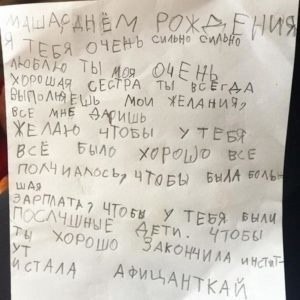 МАША С ДНЁМ РОЖДЕНИЯ
Я ТЕБЯ ОЧЕНЬ СИЛЬНО СИЛЬНО
ЛЮБЛЮ ТЫ МОЯ ОЧЕНЬ
ХОРОШАЯ СЕСТРА ТЫ ВСЕГДА
ВЫПОЛНЯЕШЬ МОИ ЖЕЛАНИЯ,
ВСЕ МНЕ ДАРИШЬ
ЖЕЛАЮ ЧТОБЫ У ТЕБЯ
ВСЁ БЫЛО ХОРОШО ВСЕ
ПОЛЧИАЛОСЬ, ЧТОБЫ БЫЛА БОЛЬ
ШАЯ
ЗАРПЛАТА, ЧТОБЫ У ТЕБЯ БЫЛИ
ПОСЛУШНЫЕ ДЕТИ. ЧТОБЫ
ТЫ ХОРОШО ЗАКОНЧИЛА ИНСТИТ-
УТ
И СТАЛА АФИЦАНТКАЙ